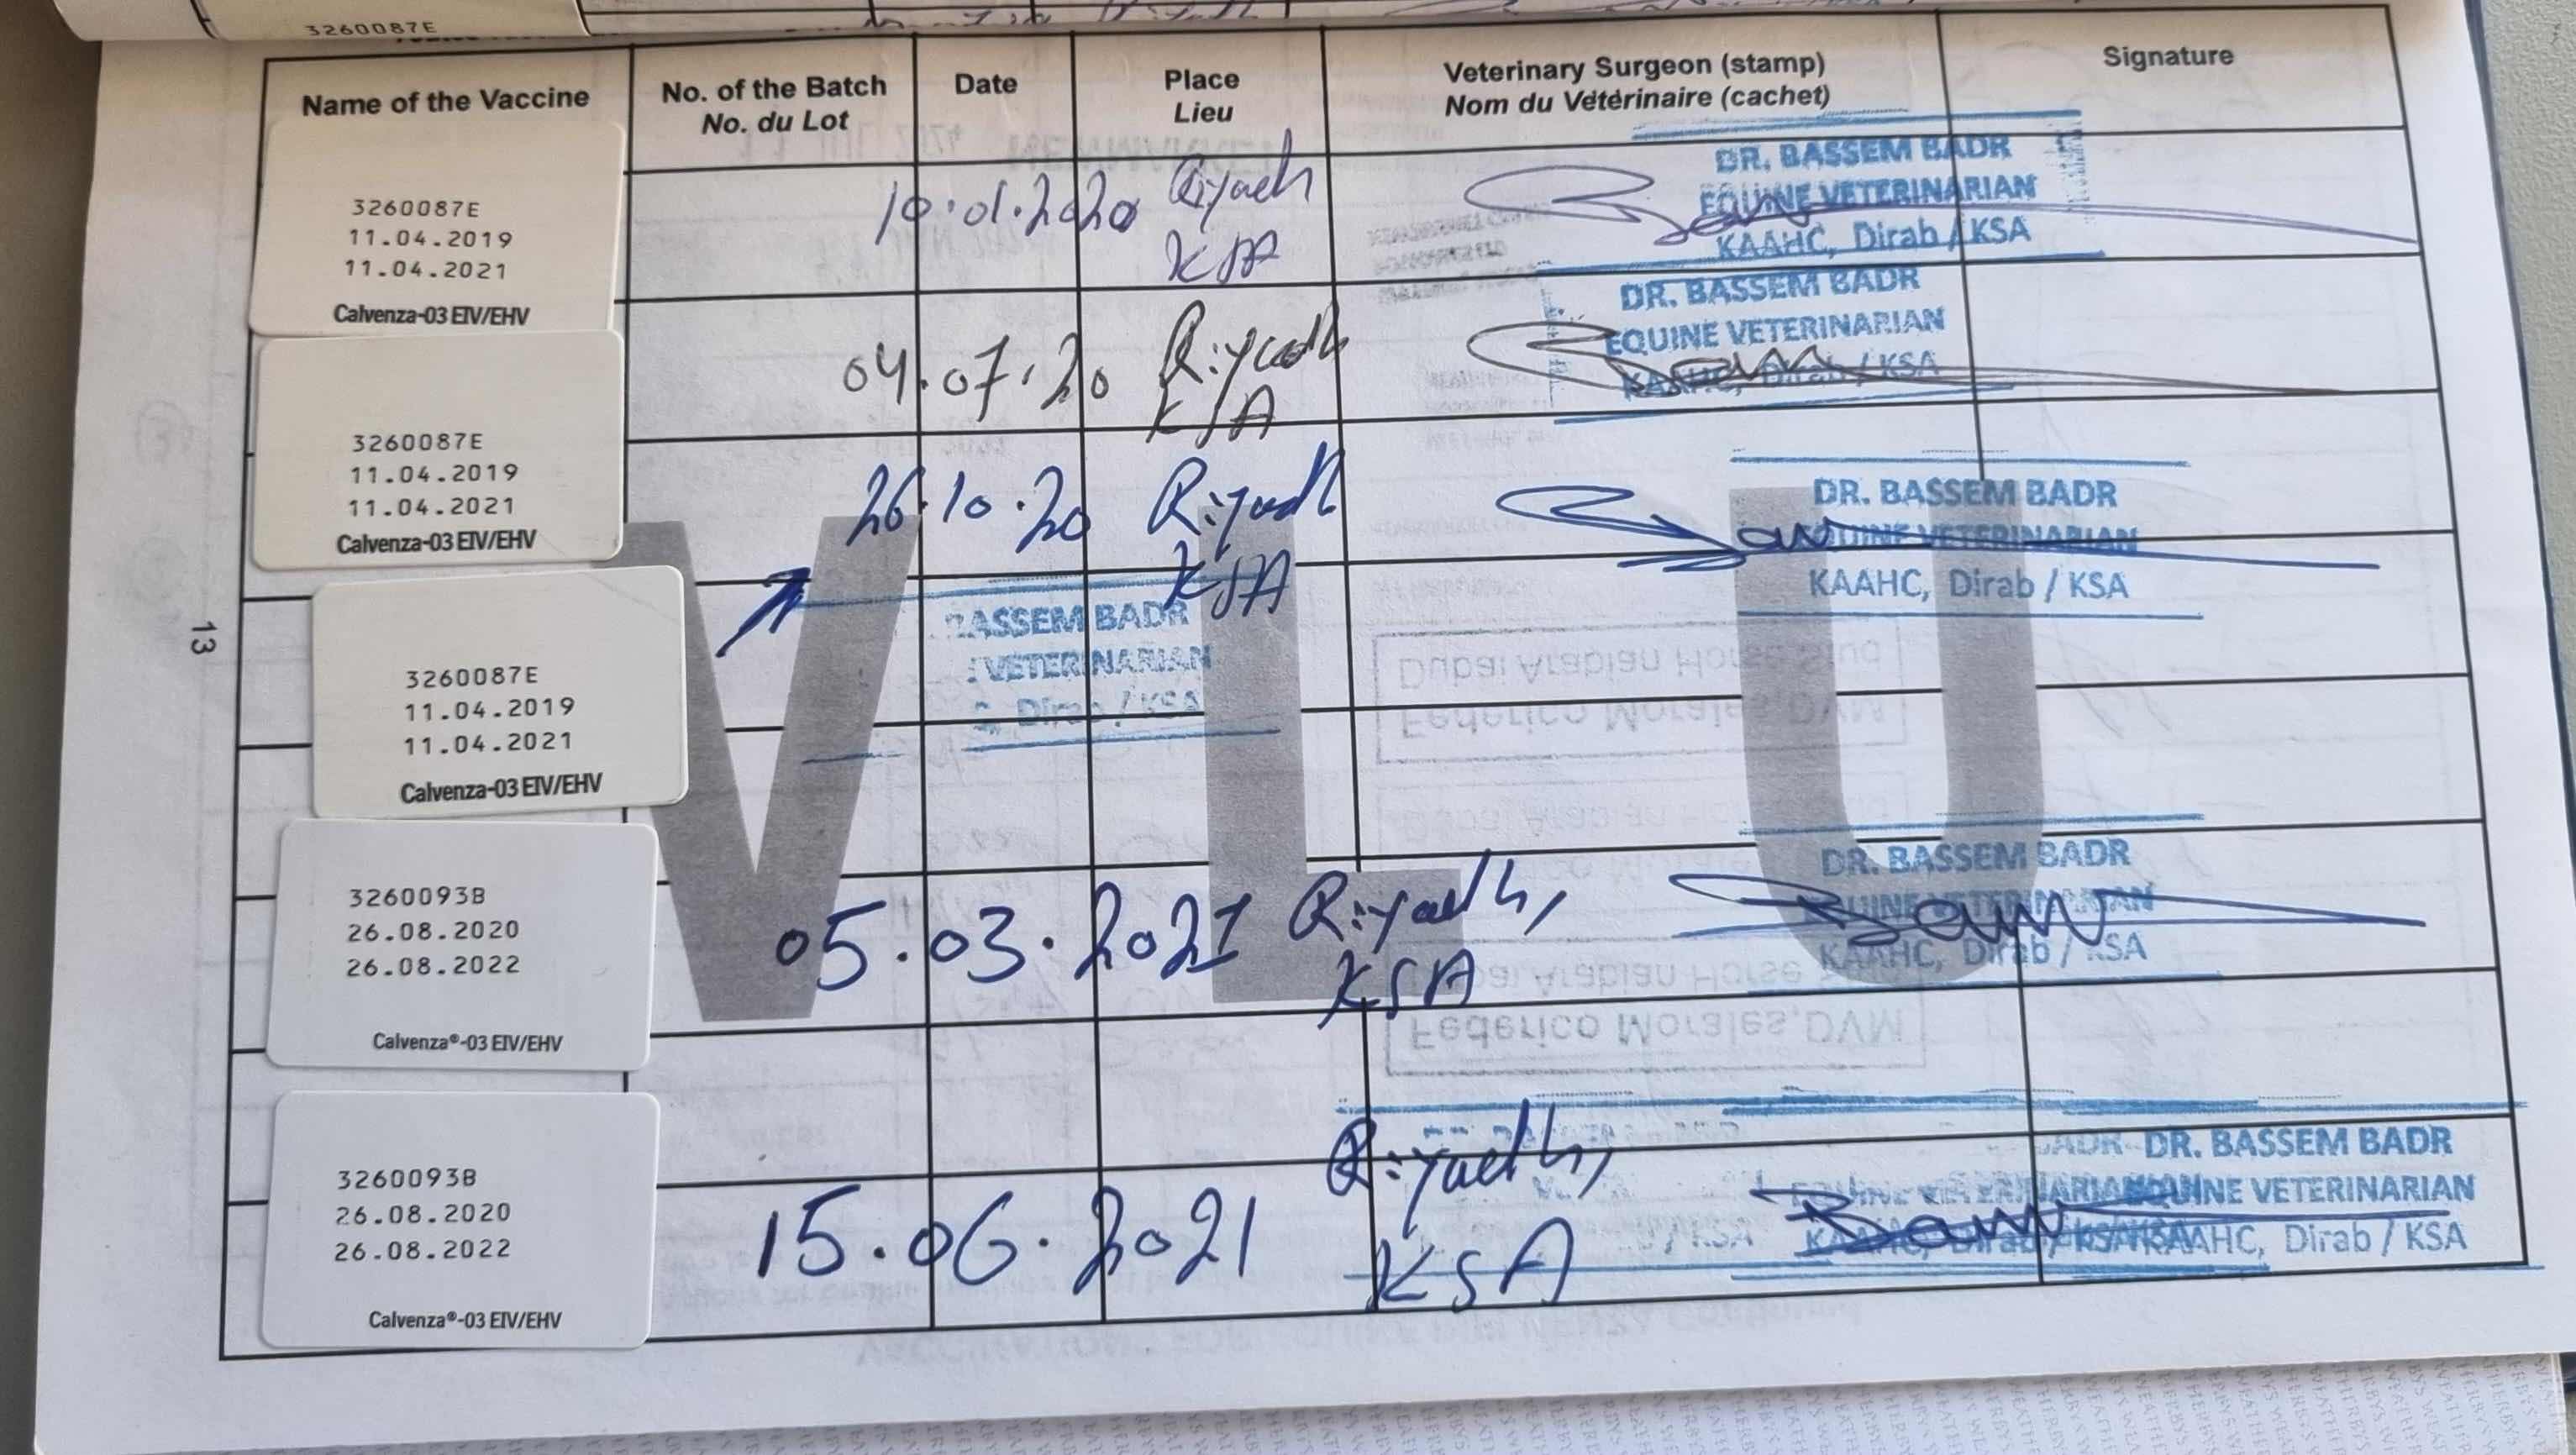 3260087E
Name of the Vaccine
No. of the Batch
No. du Lot
Date
Place
Lieu
Veterinary Surgeon (stamp)
Nom du Vétérinaire (cachet)
Signature
3260087E
11.04.2019
11.04.2021
Calvenza-03 EIV/EHV
10.01.2020
Riyadh
KSA
DR. BASSEM BADR
EQUINE VETERINARIAN
KAAHC, Dirab / KSA
3260087E
11.04.2019
11.04.2021
Calvenza-03 EIV/EHV
04.07.20
Riyadh
KSA
DR. BASSEM BADR
EQUINE VETERINARIAN
KAAHC, Dirab / KSA
3260087E
11.04.2019
11.04.2021
Calvenza-03 EIV/EHV
26.10.20
Riyadh
KSA
DR. BASSEM BADR
EQUINE VETERINARIAN
KAAHC, Dirab / KSA
BASSEM BADR
VETERINARIAN
Dirab / KSA
V L U
13
3260093B
26.08.2020
26.08.2022
Calvenza®-03 EIV/EHV
05.03.2021
Riyadh,
KSA
DR. BASSEM BADR
EQUINE VETERINARIAN
KAAHC, Dirab / KSA
3260093B
26.08.2020
26.08.2022
Calvenza®-03 EIV/EHV
15.06.2021
Riyadh,
KSA
DR. BASSEM BADR
EQUINE VETERINARIAN
KAAHC, Dirab / KSA